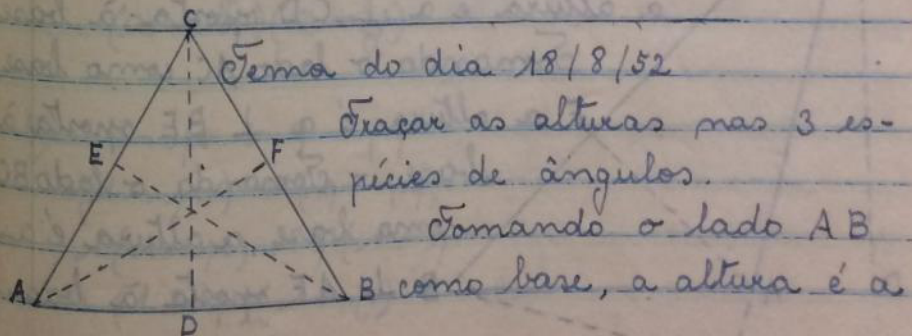 C
Tema do dia 18/8/52
Traçar as alturas nas 3 es-
E F
pécies de ângulos.
Tomando o lado AB
A B como base, a altura é a
D